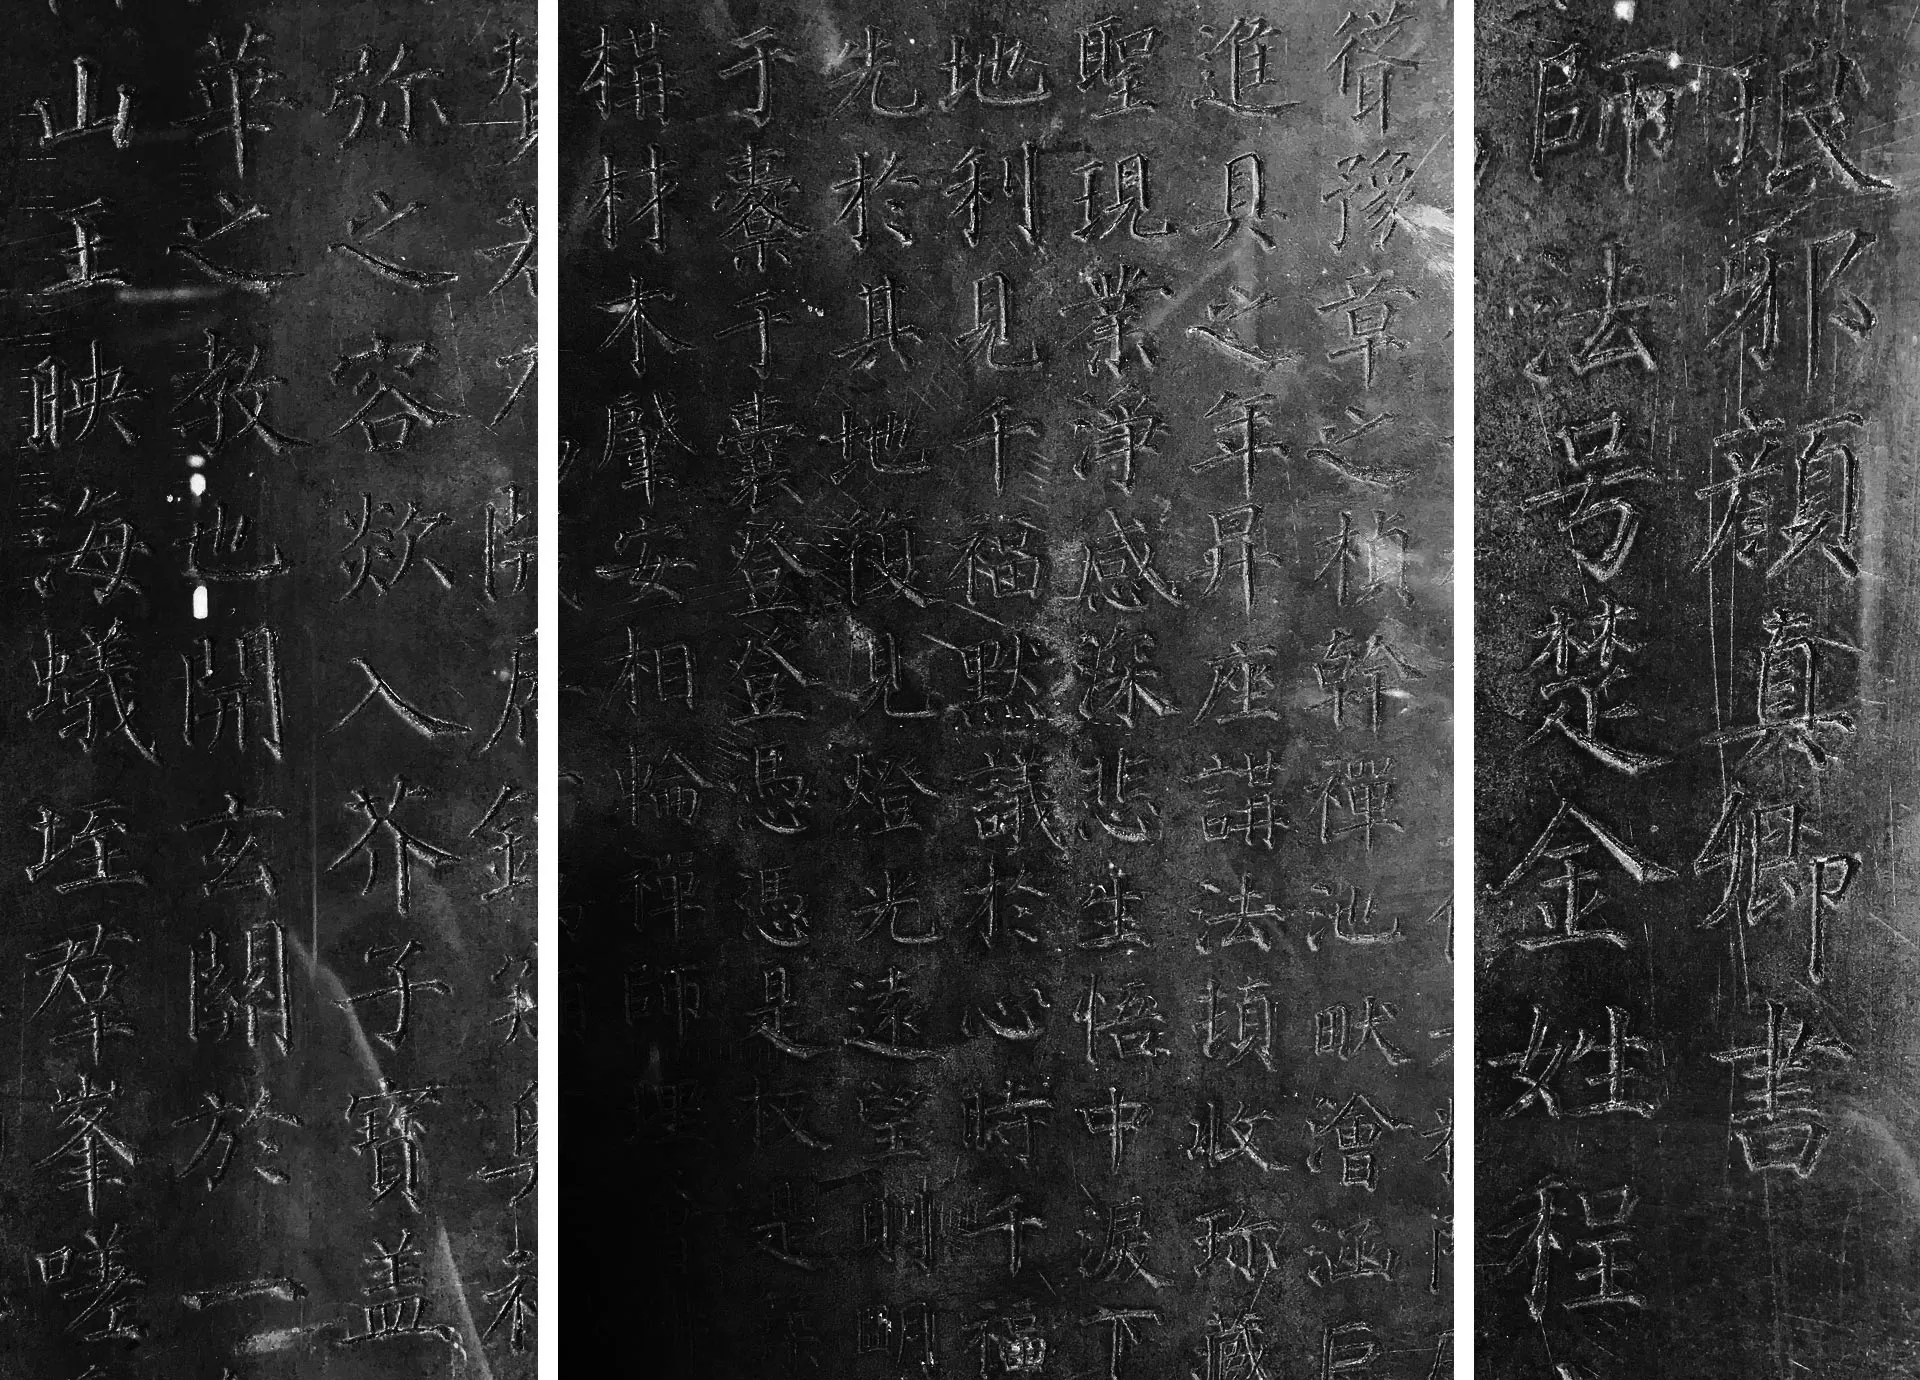 琅邪顏真卿書
師法号楚金姓程
聳豫章之楨幹禪池畎澮涵巨
進具之年昇座講法頓收珎藏
聖現業淨感深悲生悟中淚下
地利見千福默議於心時千福
先於其地復見燈光遠望則明
于橐于囊登登憑憑是板是
構材木肇安相輪禪師理
弥之容欻入芥子寶盖
華之教也開玄關於一
山王映海蟻垤羣峯嗟